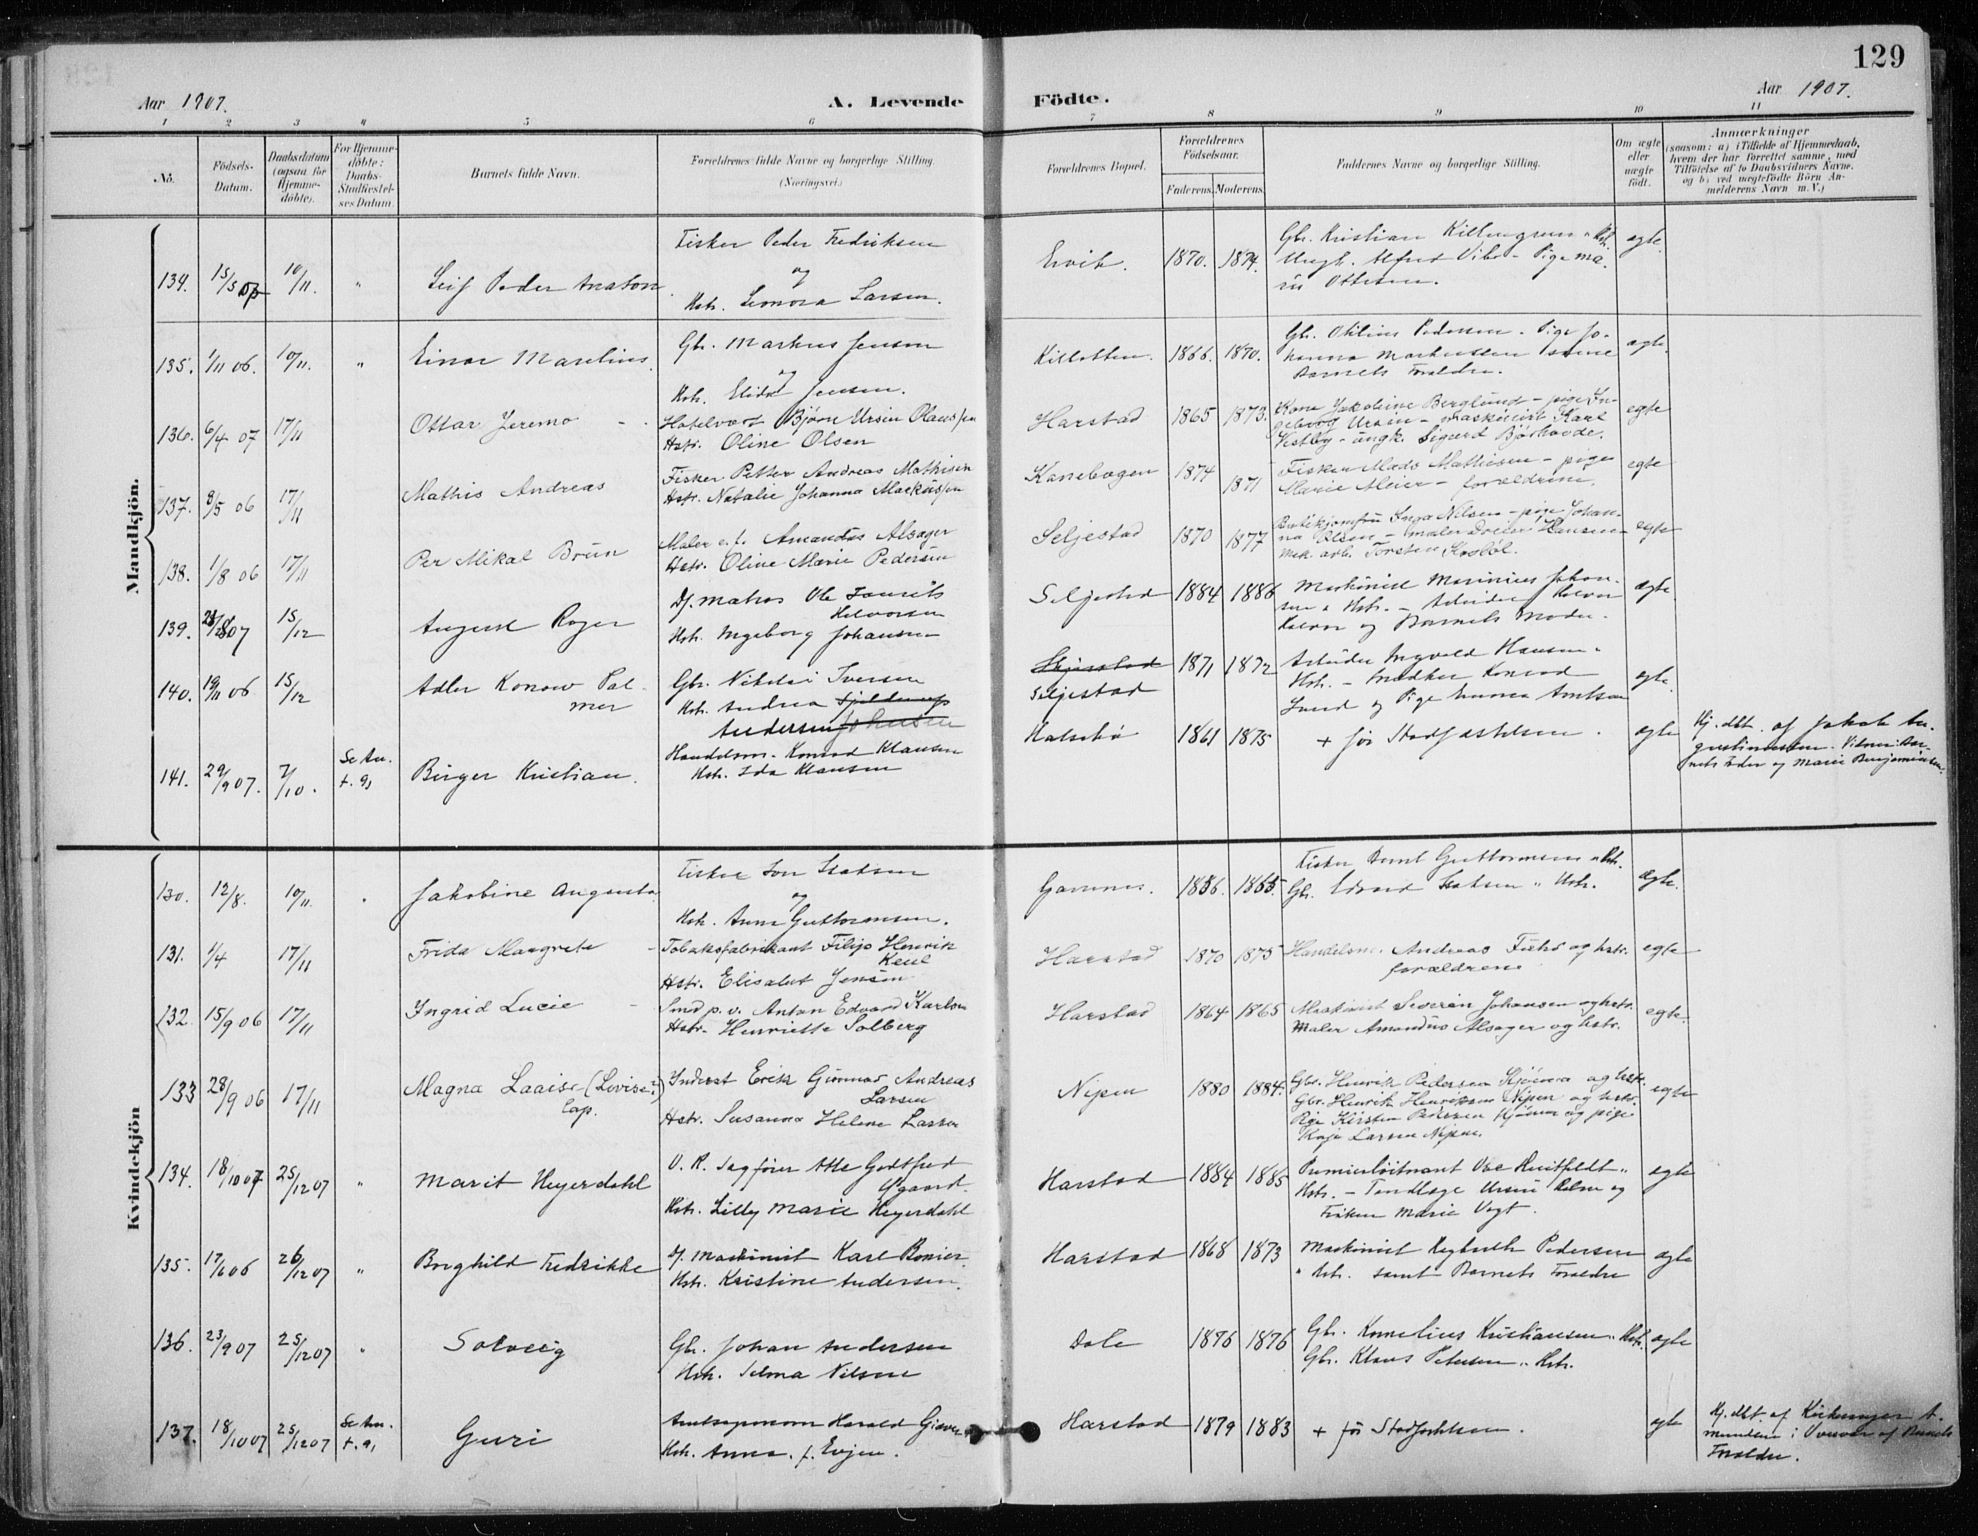 129
Aar 1907.
A. Levende
Födte.
Aar 1907.
1 2 3 4 5 6 7 8 9 10 11
No.
Födsels-
Datum.
Daabsdatum
(ogsaa for
Hjemme-
döbte).
For Hjemme-
döbte:
Daabs-
Stadfæstel-
ses Datum.
Barnets fulde Navn.
Forældrenes fulde Navne og borgerlige Stilling.
(Næringsvei.)
Forældrenes Bopæl.
Forældrenes
Födselsaar.
Faderens. Moderens.
Faddernes Navne og borgerlige Stilling.
Om ægte
eller
uægte
födt.
Anmærkninger
(saasom: a) i Tilfælde af Hjemmedaab,
hvem der har forrettet samme, med
Tilföielse af to Daabsvidners Navne,
og b) ved uægtefödte Börn An-
melderens Navn m. V.)
Mandkjön.
134. 15/5 07 10/11. " Leif Peder Anaton
Fisker Peder Fredriksen
og
Hstr. Leonora Larsen.
Ervik. 1870. 1874.
Gbr. Kristian " Hstr.
Ungk. Alfred Vibe - Pige Ma-
rie Ottesen.
ægte
135. 1/11 06. 10/11. " Einar Marelius.
Gbr. Markus Jensen
og
Hstr. Elida Jensen.
Kilbotten. 1866. 1870.
Gbr. Othilius Pedersen. Pige Jo-
hanna Markussen samt
Barnets Forældre.
ægte.
136. 6/4 07 17/11 Ottar Jeremo
Hotelvært Björn Ursin Olaussen
Hstr. Oline Olsen
Harstad 1865 1873.
Kone Jakobine Berglund - pige In-
geborg Ursin - maskinist Karl
Vestby - ungk. Sigurd Björhovde.
egte
137. 8/5 06 17/11 Mathis Andreas
Fisker Petter Andreas Mathisen
Hstr. Natalie Johanna Markussen
Kanebogen 1874 1871
Fisker Mads Mathisen - pige
Marie Meier - forældrene.
egte
138. 1/8 06 17/11 Per Mikal Brun
Maler e.l. Amandus Alsager
Hstr. Oline Marie Pedersen
Seljestad 1870 1877
Butikjomfru Inga Nilsen - pige Johan-
na Olsen - maler Hansen -
mek. arb. Torsten
egte
139. 28/8 07 15/12 August Roger
Df. Matros Ole Laurits
Halvorsen
Hstr. Ingeborg Johansen
Seljestad 1884 1886
Maskinist Marinius Johan-
sen " Hstr. - Arbeider Halvor
Halvor og Barnets Moder.
ægte
140. 19/11 06 15/12 Adler Konow Pal-
mer
Gbr. Nikolai Iversen
Hstr. Andrea
Andersen Johnsen
Seljestad
Seljestad 1871 1872
Arbeider Ingvald Hansen "
Hstr. - Snedker Konrad
Lund og Pige Emma Arntsen
ægte.
141. 29/9 07. 7/10. Se An.
t. 9, Birger Kristian.
Handelsm. Konrad Klausen
Hstr. Ida Klausen
Halsebö 1861 1875 + før Stadfæstelsen. ægte
Hj. dbt. af Jakob Au-
gustinussen. Vidner: Bar-
nets Fader og Marie Benjaminsen.
Kvindekjön
130. 12/8. 10/11. " Jakobine Augusta.
Fisker Isaksen
og
Hstr. Anna Guttormsen.
Gammes. 1856. 1865.
Fisker Arnt Guttormsen " Hstr.
Gbr. Edvard Isaksen " Hstr.
ægte.
131. 1/4 17/11 Frida Margrete
Tobaksfabrikant Filip Henrik
Keul
Hstr. Elisabet Jensen
Harstad 1870 1875
Handelsm. Andreas og hstr.
forældrene
egte
132 15/9 06 17/11 Ingrid Lucie
Smed p.v. Anton Edvard Karlsen
Hstr. Henriette Solberg
Harstad 1864 1865
Maskinist Severin Johansen og hstr.
Maler Amandus Alsager og hstr.
egte.
133 28/9 06 17/11 Magna Laaise (Lovise?)
Lap.
Inderst Erik Gunnar Andreas
Larsen
Hstr. Susanna Helene Larsen
Nipen 1880 1884.
Gbr. Henrik Pedersen Kjönna og hstr.
Gbr. Henrik Henriksen Nipen og hstr.
Pige Kirsten Pedersen Kjönna og pige
Kaja Larsen Nipen.
egte
134. 18/10 07 25/12 07 " Marit Heyerdahl
O. R. Sagfører Atle Godtfred
Ygaard.
Hstr. Lilly Marie Heyerdahl
Harstad 1884 1885
Premierløitnant Ove Huitfeldt "
Hstr. - Tandlæge Ursin Holm og
Frøken Marie Vogt.
ægte
135. 17/6 06 26/12 07 " Borghild Fredrikke
Df. Maskinist Karl Bonier.
Hstr. Kristine Andersen.
Harstad 1868 1873
Maskinist Pedersen
" Hstr. samt Barnets Forældre
ægte
136. 23/9 07 25/12 07 " Solveig
Gbr. Johan Andersen
Hstr. Selma Nilsen
Dale 1876 1876
Gbr. Kornelius Kristiansen " Hstr.
Gbr. Klaus Petersen " Hstr.
ægte
137. 18/10 07 25/12 07 Se An.
t. 9, Guri
Amtsagronom Harald Giæver
Hstr. Anna. f. Evjen.
Harstad 1879 1883 + før Stadfæstelsen. ægte
Hj. dbt. af Kirkesanger A-
mundsen i Overvær af Barnets
Forældre.